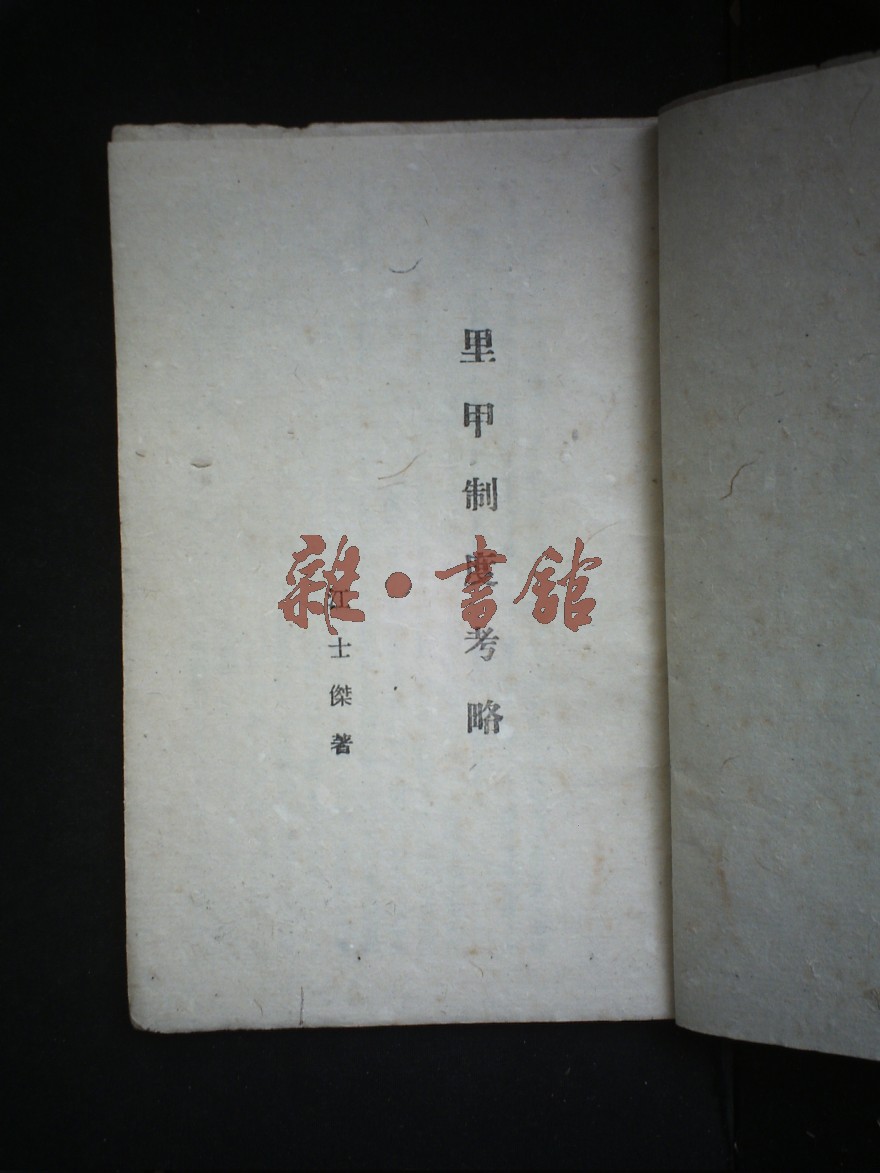 里甲制度考略
江士傑著
雜·書館